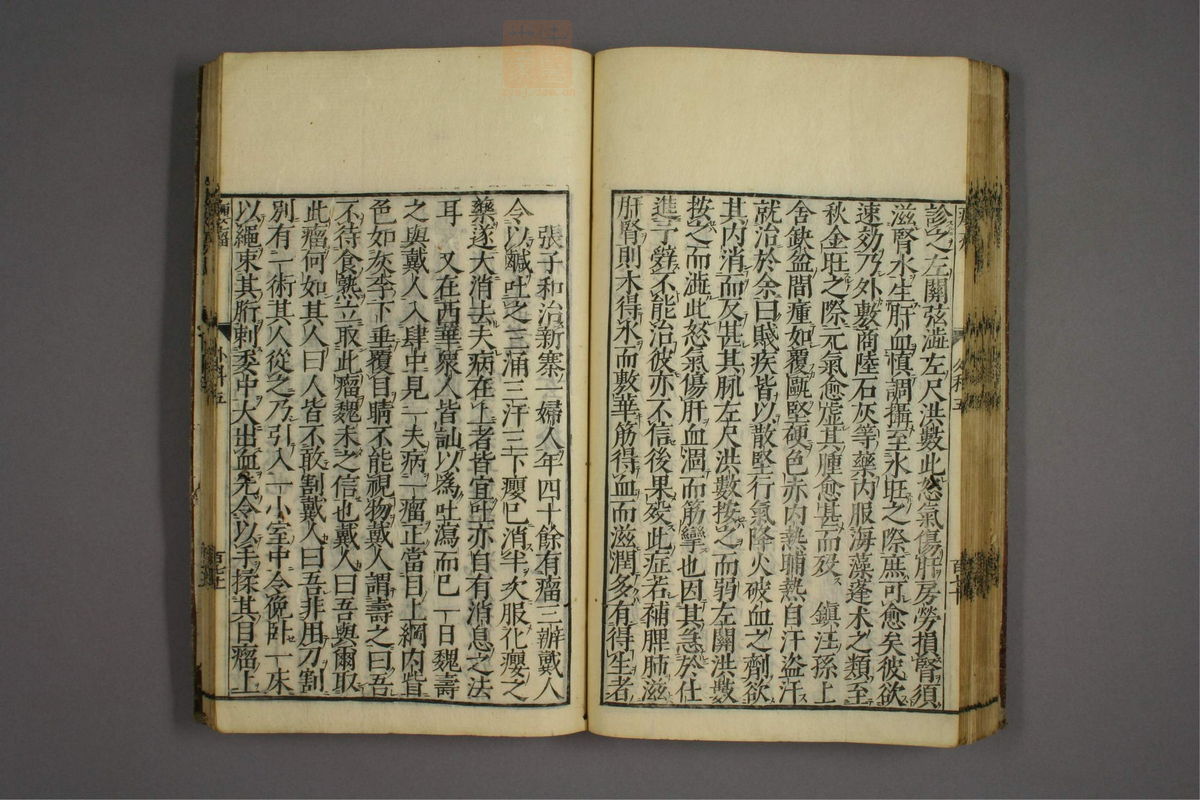 診之左關弦澁左尺洪數此怒氣傷肝房勞損腎須
滋腎水生肝血慎調攝至水旺之際庶可愈矣彼欲
速効乃外敷商陸石灰等藥内服海藻蓬术之類至
秋金旺之際元氣愈虛其腫愈甚而歿　鎮江孫上
舍缺盆間腫如覆甌堅硬色赤内熱晡熱自汗盗汗
就治於余曰賊疾皆以散堅行氣降火破血之劑欲
其内消而反甚其脈左尺洪數按之而弱左關洪數
按之而澁此怒氣傷肝血涸而筋攣也因其急於仕
進予辭不能治彼亦不信後果歿此症若補脾肺滋
肝腎則木得水而敷華筋得血而滋潤多有得生者
張子和治新寨一婦人年四十餘有瘤三瓣戴人
令以鹹吐之三涌三汗三下癭已消半次服化癭之
藥遂大消去夫病在上者皆宜吐亦自有消息之法
耳　又在西華衆人皆訕以爲吐瀉而已一日魏壽
之與戴人入肆中見一夫病一瘤正當目上綱内眥
色如灰李下垂覆目睛不能視物戴人謂壽之曰吾
不待食熟立取此瘤魏未之信也戴人曰吾與爾取
此瘤何如其人曰人皆不敢割戴人曰吾非用刀割
別有一術其人從之乃引入一小室中令俛卧一床
以繩束其胻刺委中大出血先令以手揉其目瘤上
外科五